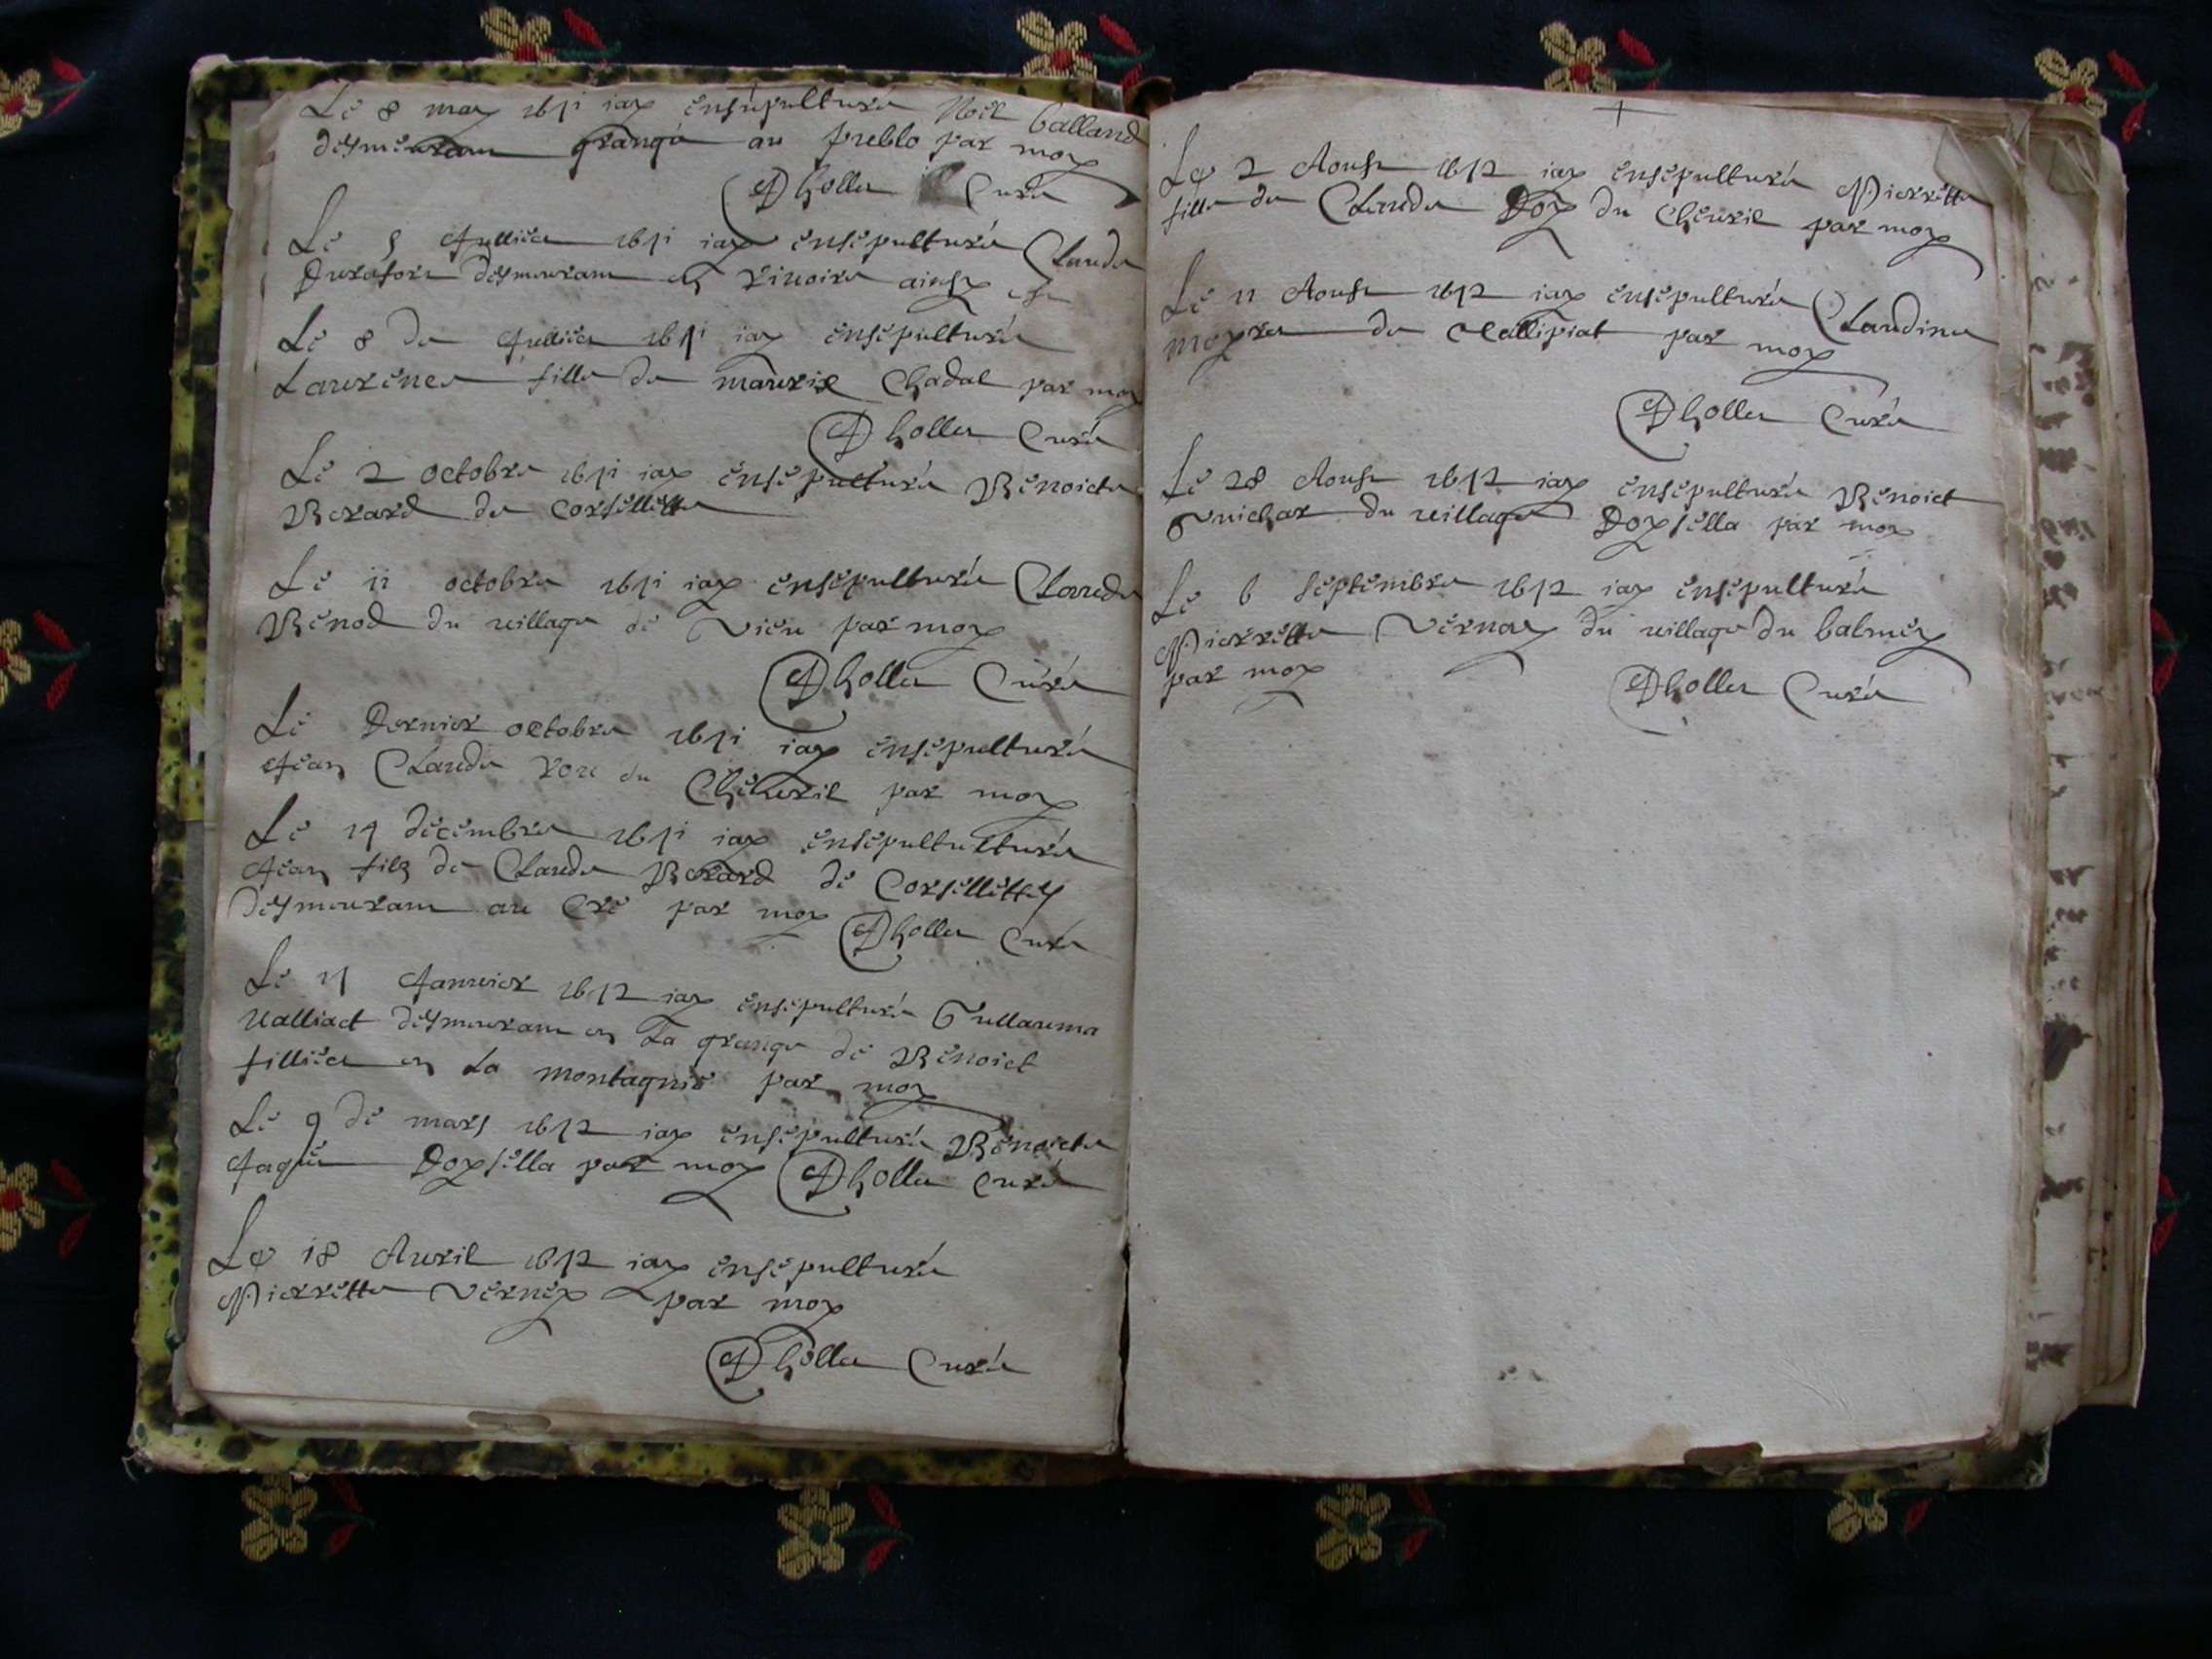 Le 8 may 1651 iay ensepulturé Noël balland
desmeuram grangé au preblo par moy
Dholler Curé
Le 5 Jullier 1651 iay ensepulturé Claude
Durafore desmeuram en rivoire ainsy est
Le 8 de Jullier 1651 iay ensepulturé
Laurence fille de maurix Chadal par moy
Dholler Curé
Le 2 octobre 1651 iay ensepulturé Benoicte
Berard de Corsellette
Le 11 octobre 1651 iay ensepulturé Claude
Benod du village de Vieu par moy
Dholler Curé
Le Dernier octobre 1651 iay ensepulturé
Jean Claude du Cheuril par moy
Le 14 décembre 1651 iay ensepultulturé
Jean filz de Claude Berard de Corsellettes
desmeuram au Cré par moy Dholler Curé
Le Januier 1652 iay ensepulturé Gullaume
ualliact desmeuram en La grange de Benoict
fillier en La montagnie par moy
Le 9 de mars 1652 iay ensepulturé Benoicte
Jaguë Doysella par moy Dholler Curé
Le 18 Auril 1652 iay ensepulturé
Pierrette Verney par moy
Dholler Curé
Le 2 Aoust 1652 iay ensepulturé Pierrette
fille de Claude Roy du Cheuril par moy
Le 11 Aoust 1652 iay ensepulturé Claudine
moyra de Callipiat par moy
Dholler Curé
Le 28 Aoust 1652 iay ensepulturé Benoict
Guichar du uillage Doysella par moy
Le 6 septembre 1652 iay ensepulturé
Pierrette Vernay du uillage du balmey
par moy
Dholler Curé